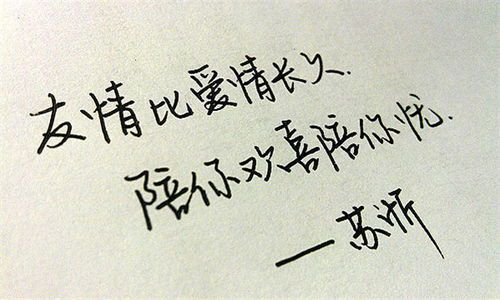 友情比爱情长久.
陪你欢喜陪你忧.
—苏沂